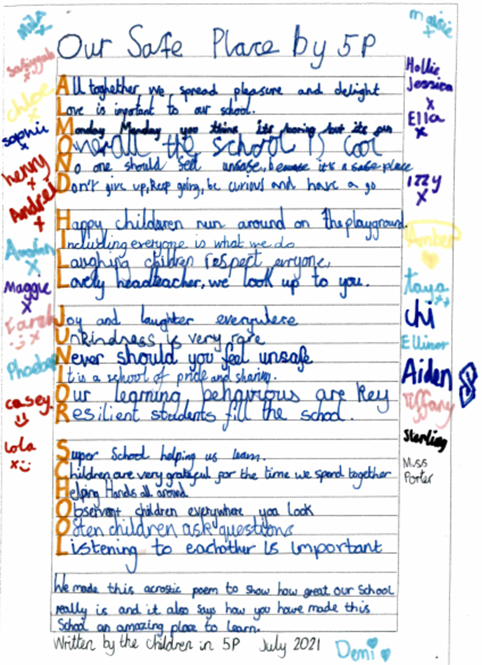 Our Safe Place by 5P
All toghether we spread pleasure and delight
Love is inportant to our school.
Monday Monday you think its boring but its fun
Overall the school is cool
No one should feel unsafe, because it's a safe place
Don't give up, keep going, be curious and have a go
Happy childaren run around on the playground.
Including everyone is what we do
Laughing children respect everyone,
Lovely headteacher, we look up to you.
Joy and laughter everywhere
Unkindness is very rare
Never should you feel unsafe
It is a school of pride and sharing.
Our learning behavirous are key
Resilient students fill the school.
Super School helping us learn.
Children are very grateful for the time we spend together
Helping Hands all around
Observant children everywhere you look
Often children ask questions
Listening to eachother is important
We made this acrostic poem to show how great our School
really is and it also says how you have made this
School an amazing place to learn.
Written by the children in 5P July 2021
Demi
Safiyyah
chloe
Sophie
henry
Andrei
Maggie
Farah
Phoebe
casey
Lola
maisie
Hollie
Jessica
Ella
Izzy
Amber
Taya
Chi
Ellinor
Aiden 8
Tiffany
Sterling
Miss
Porter